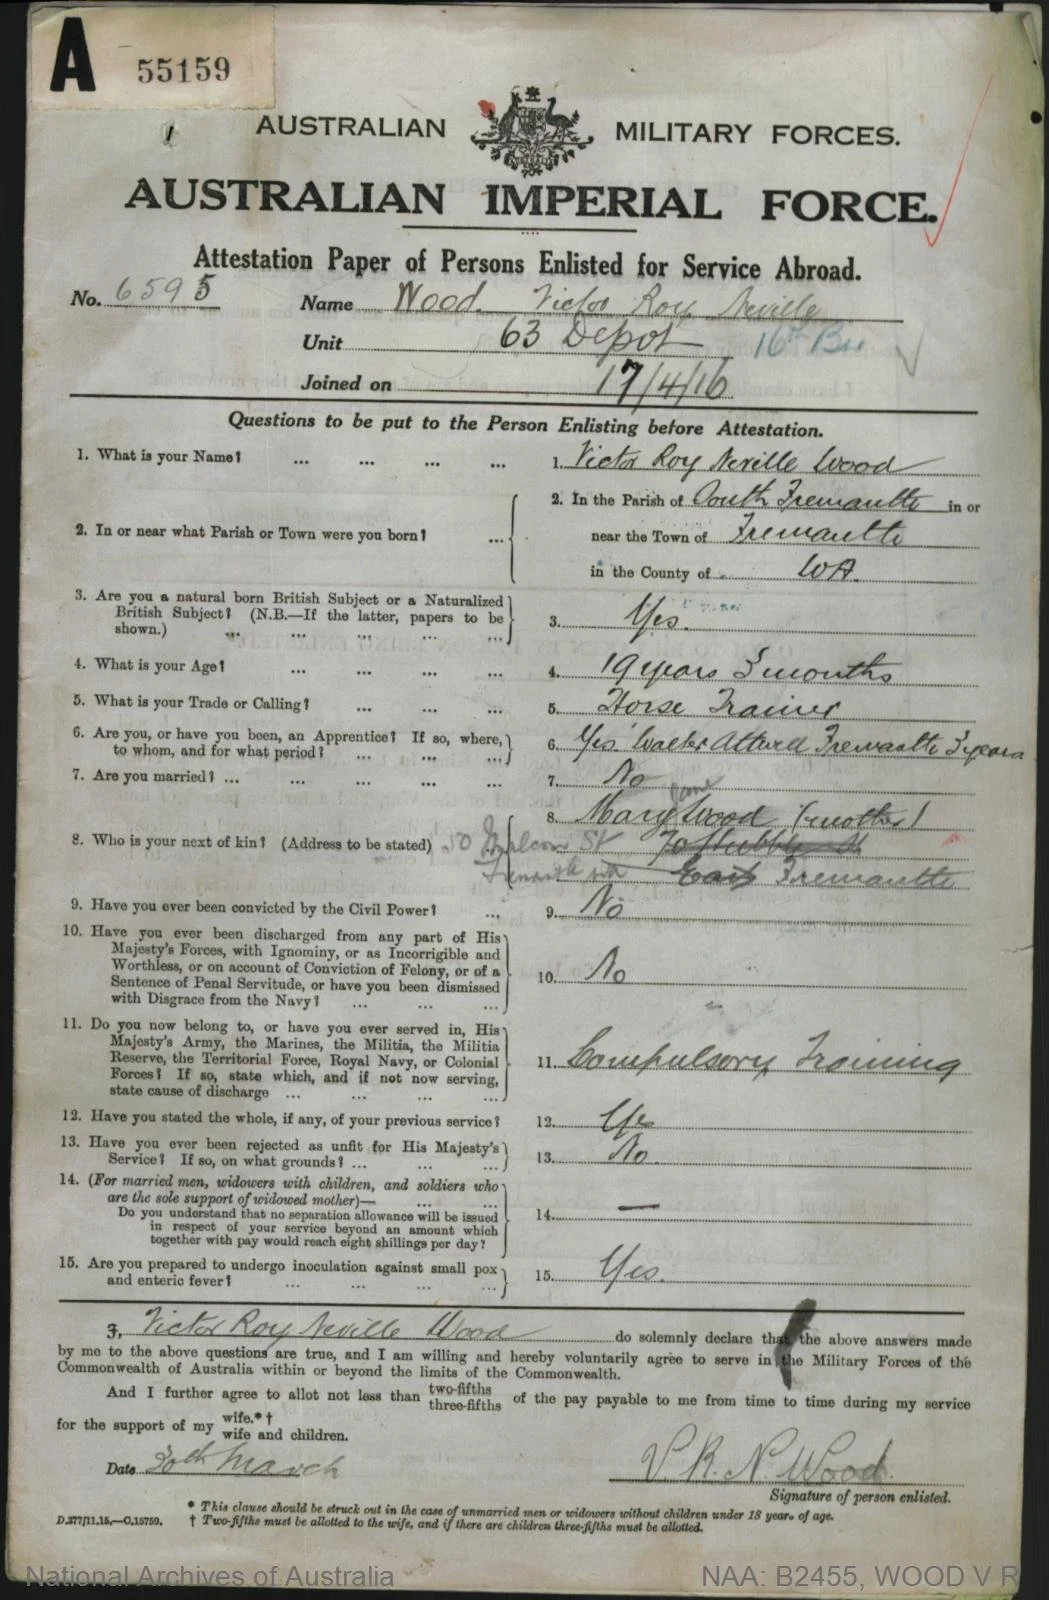 A 55159
AUSTRALIAN MILITARY FORCES.
AUSTRALIAN IMPERIAL FORCE.
Attestation Paper of Persons Enlisted for Service Abroad.
No. 6595 Name Wood. Victor Roy Neville
Unit 63 Depot 16th Bn
Joined on 17/4/16
Questions to be put to the Person Enlisting before Attestation.
1. What is your Name? ... ... ... ... 1. Victor Roy Neville Wood
2. In or near what Parish or Town were you born? ... 2. In the Parish of South Fremantle in or
near the Town of Fremantle
in the County of WA.
3. Are you a natural born British Subject or a Naturalized
British Subject? (N.B.—If the latter, papers to be
shown.) ... ... ... ... ... 3. Yes.
4. What is your Age? ... ... ... 4. 19 years 3 months
5. What is your Trade or Calling? ... ... ... 5. Horse Trainer
6. Are you, or have you been, an Apprentice? If so, where,
to whom, and for what period? ... ... ... 6. Yes. Walter Attwell Fremantle 3 years
7. Are you married? ... ... ... ... ... 7. No
Jane
8. Mary Wood (mother)
8. Who is your next of kin? (Address to be stated) 50 Malcom St
East Fremantle
9. Have you ever been convicted by the Civil Power? ... 9. No
10. Have you ever been discharged from any part of His
Majesty's Forces, with Ignominy, or as Incorrigible and
Worthless, or on account of Conviction of Felony, or of a
Sentence of Penal Servitude, or have you been dismissed
with Disgrace from the Navy? ... ... ... 10. No
11. Do you now belong to, or have you ever served in, His
Majesty's Army, the Marines, the Militia, the Militia
Reserve, the Territorial Force, Royal Navy, or Colonial
Forces? If so, state which, and if not now serving,
state cause of discharge ... ... ... ... 11. Compulsory Training
12. Have you stated the whole, if any, of your previous service? 12. Yes
13. Have you ever been rejected as unfit for His Majesty's
Service? If so, on what grounds? ... ... ... 13. No.
14. (For married men, widowers with children, and soldiers who
are the sole support of widowed mother)— ... ...
Do you understand that no separation allowance will be issued
in respect of your service beyond an amount which
together with pay would reach eight shillings per day? 14. —
15. Are you prepared to undergo inoculation against small pox
and enteric fever? ... ... ... ... 15. Yes.
I, Victor Roy Neville Wood do solemnly declare that the above answers made
by me to the above questions are true, and I am willing and hereby voluntarily agree to serve in the Military Forces of the
Commonwealth of Australia within or beyond the limits of the Commonwealth.
And I further agree to allot not less than two-fifths three-fifths of the pay payable to me from time to time during my service
for the support of my wife.*† wife and children.
Date 30th March V R. N. Wood.
Signature of person enlisted.
* This clause should be struck out in the case of unmarried men or widowers without children under 18 years of age.
D.377/11.15.—C.15759. † Two-fifths must be allotted to the wife, and if there are children three-fifths must be allotted.
National Archives of Australia NAA: B2455, WOOD V R